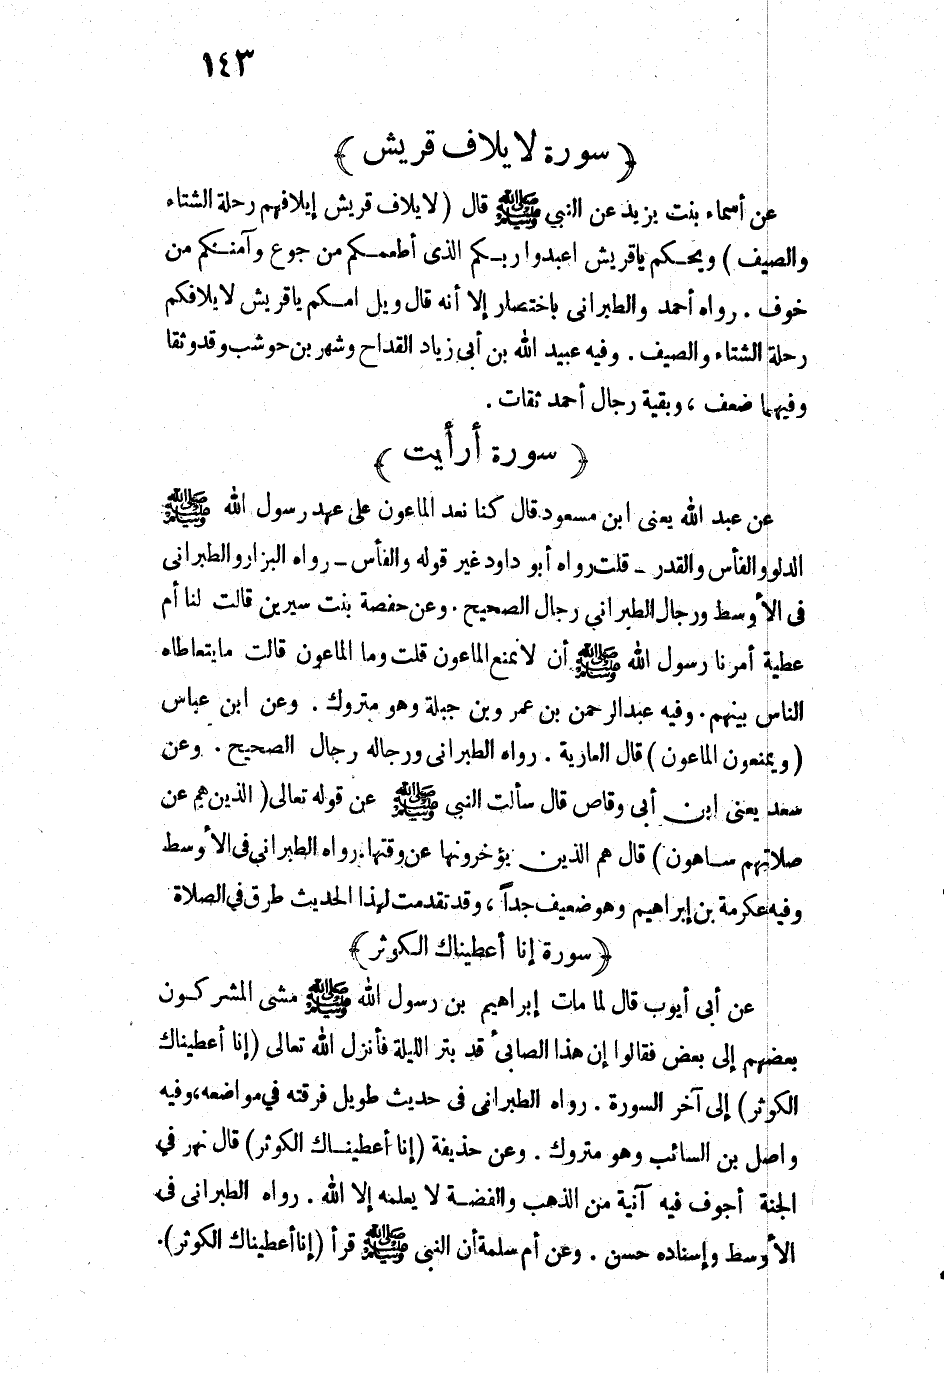 ١٤٣
﴿ سورة لايلاف قريش ﴾
عن أسماء بنت يزيد عن النبي ﷺ قال ( لايلاف قريش إيلافهم رحلة الشتاء
والصيف ) ويحكم ياقريش اعبدوا ربكم الذى أطعمكم من جوع وآمنكم من
خوف . رواه أحمد والطبرانى باختصار إلا أنه قال ويل امكم ياقريش لايلافكم
رحلة الشتاء والصيف . وفيه عبيد الله بن أبى زياد القداح وشهر بن حوشب وقد وثقا
وفيهما ضعف ، وبقية رجال أحمد ثقات .
﴿ سورة أرأيت ﴾
عن عبد الله يعنى ابن مسعود قال كنا نعد الماعون على عهد رسول الله ﷺ
الدلو والفأس والقدر ـ قلت رواه أبو داود غير قوله والفأس ـ رواه البزار والطبرانى
فى الأوسط ورجال الطبراني رجال الصحيح . وعن حفصة بنت سيرين قالت لنا أم
عطية أمرنا رسول الله ﷺ أن لانمنع الماعون قلت وما الماعون قالت مايتعاطاه
الناس بينهم . وفيه عبد الرحمن بن عمر وبن جبلة وهو متروك . وعن ابن عباس
( ويمنعون الماعون ) قال العارية . رواه الطبرانى ورجاله رجال الصحيح . وعن
سعد يعنى ابن أبى وقاص قال سألت النبي ﷺ عن قوله تعالى ( الذين هم عن
صلاتهم ساهون ) قال هم الذين يؤخرونها عن وقتها . رواه الطبراني فى الأوسط
وفيه عكرمة بن إبراهيم وهو ضعيف جداً ، وقد تقدمت لهذا الحديث طرق في الصلاة
﴿ سورة إنا أعطيناك الكوثر ﴾
عن أبى أيوب قال لما مات إبراهيم بن رسول الله ﷺ مشى المشركون
بعضهم إلى بعض فقالوا إن هذا الصابئ قد بتر الليلة فأنزل الله تعالى ( إنا أعطيناك
الكوثر ) إلى آخر السورة . رواه الطبرانى فى حديث طويل فرقته في مواضعه ، وفيه
واصل بن السائب وهو متروك . وعن حذيفة ( إنا أعطيناك الكوثر ) قال نهر في
الجنة أجوف فيه آنية من الذهب والفضة لا يعلمه إلا الله . رواه الطبرانى فى
الأوسط وإسناده حسن . وعن أم سلمة أن النبى ﷺ قرأ ( إنا أعطيناك الكوثر ) .